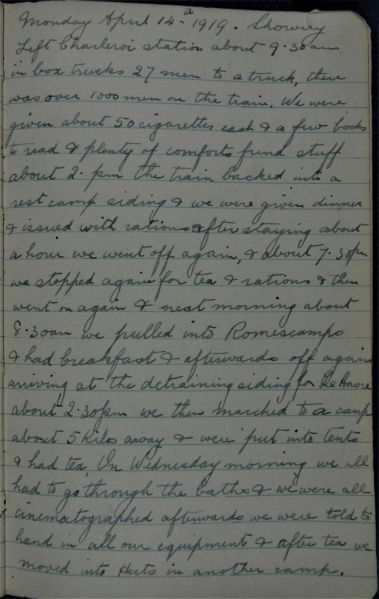 Monday April 14th 1919. Showery
Left Charleroi station about 9.30am
in box trucks 27 men to a truck, there
was over 1000 men on the train. We were
given about 50 cigarettes each & a few books
to read & plenty of comforts fund stuff
about 2. pm the train backed into a
rest camp siding & we were given dinner
& issued with rations after staying about
a hour we went off again, & about 7.30pm
we stopped again for tea & rations & then
went on again & next morning about
8.30am we pulled into Romescamps
& had breakfast & afterwards off again
arriving at the detraining siding for Le Havre
about 2.30pm we then marched to a camp
about 5 kilos away & were put into tents
& had tea, On Wednesday morning we all
had to go through the baths & we were all
cinematographed afterwards we were told to
hand in all our equipment & after tea we
moved into Huts in another camp.